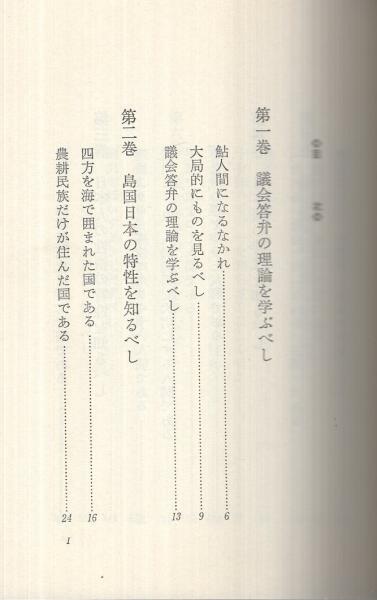 第一巻　議会答弁の理論を学ぶべし
鮎人間になるなかれ……………………6
大局的にものを見るべし……………………9
議会答弁の理論を学ぶべし……………………13
第二巻　島国日本の特性を知るべし
四方を海で囲まれた国である……………………16
農耕民族だけが住んだ国である……………………24
I